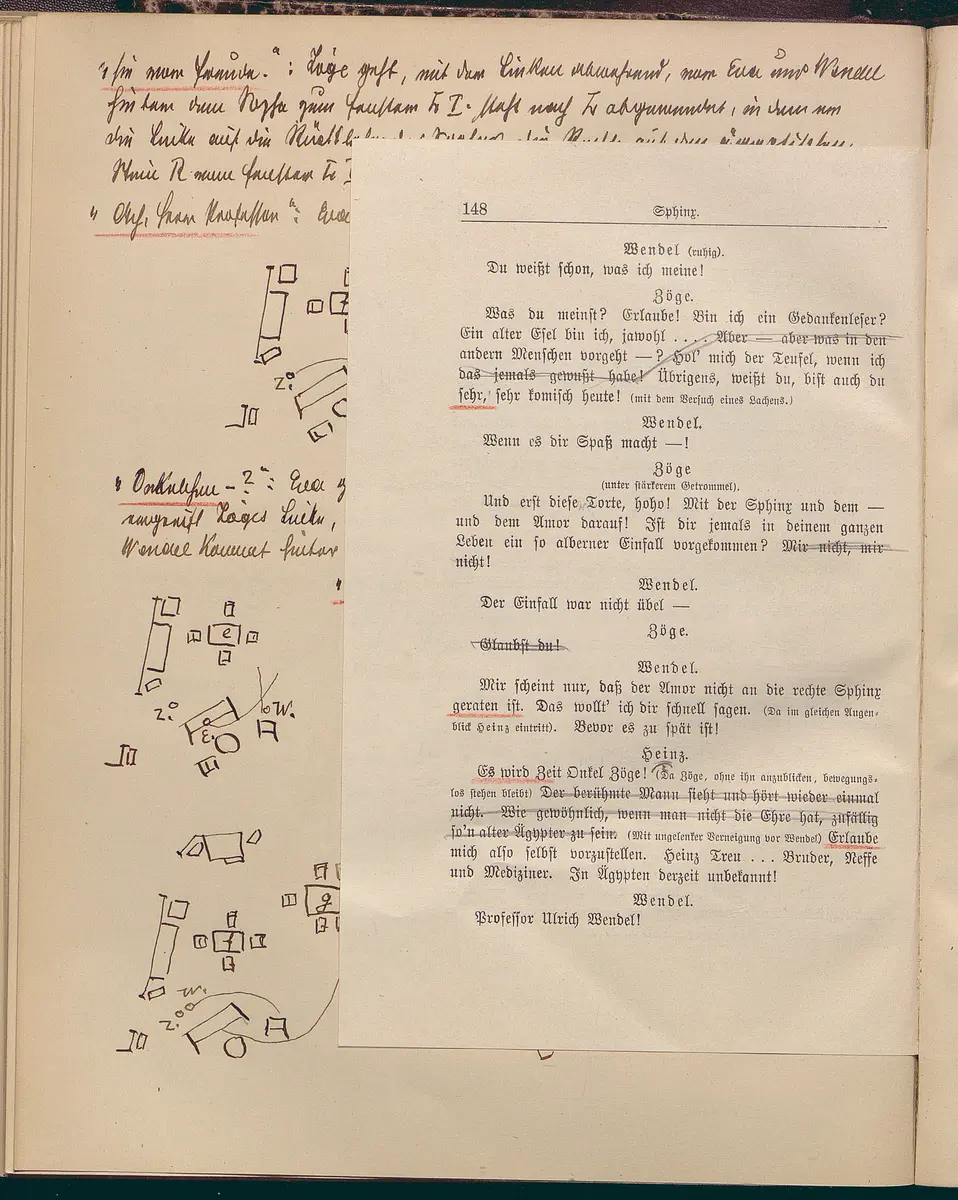 „ Sie vom Freunde.“: Zöge geht, mit der Linken abwehrend, vom Eva und Wendel
hinter dem Sopha zum Fenster Lr I.
die Linke auf die
R vom Fenster Lr I
„ Ach, Herr Professor“: Eva
Z.
„ Onkelchen – ?“: Eva
ergreift Zöges Linke,
Wendel kommt hinter
e
W.
Z.
E.
g
f
W.
Z.
148
Sphinx.
Wendel (ruhig).
Du weißt schon, was ich meine!
Zöge.
Was du meinst? Erlaube! Bin ich ein Gedankenleser?
Ein alter Esel bin ich, jawohl . . . . Aber — aber was in den
andern Menschen vorgeht —? Hol’ mich der Teufel, wenn ich
das jemals gewußt habe! Übrigens, weißt du, bist auch du
sehr, sehr komisch heute! (mit dem Versuch eines Lachens.)
Wendel.
Wenn es dir Spaß macht —!
Zöge
(unter stärkerem Getrommel).
Und erst diese Torte, hoho! Mit der Sphinx und dem —
und dem Amor darauf! Ist dir jemals in deinem ganzen
Leben ein so alberner Einfall vorgekommen? Mir nicht, mir
nicht!
Wendel.
Der Einfall war nicht übel —
Zöge.
Glaubst du!
Wendel.
Mir scheint nur, daß der Amor nicht an die rechte Sphinx
geraten ist. Das wollt’ ich dir schnell sagen. (Da im gleichen Augen-
blick Heinz eintritt). Bevor es zu spät ist!
Heinz.
Es wird Zeit Onkel Zöge! (Da Zöge, ohne ihn anzublicken, bewegungs-
los stehen bleibt) Der berühmte Mann sieht und hört wieder einmal
nicht. Wie gewöhnlich, wenn man nicht die Ehre hat, zufällig
so’n alter Ägypter zu sein. (Mit ungelenker Verneigung vor Wendel) Erlaube
mich also selbst vorzustellen. Heinz Treu . . . Bruder, Neffe
und Mediziner. In Ägypten derzeit unbekannt!
Wendel.
Professor Ulrich Wendel!